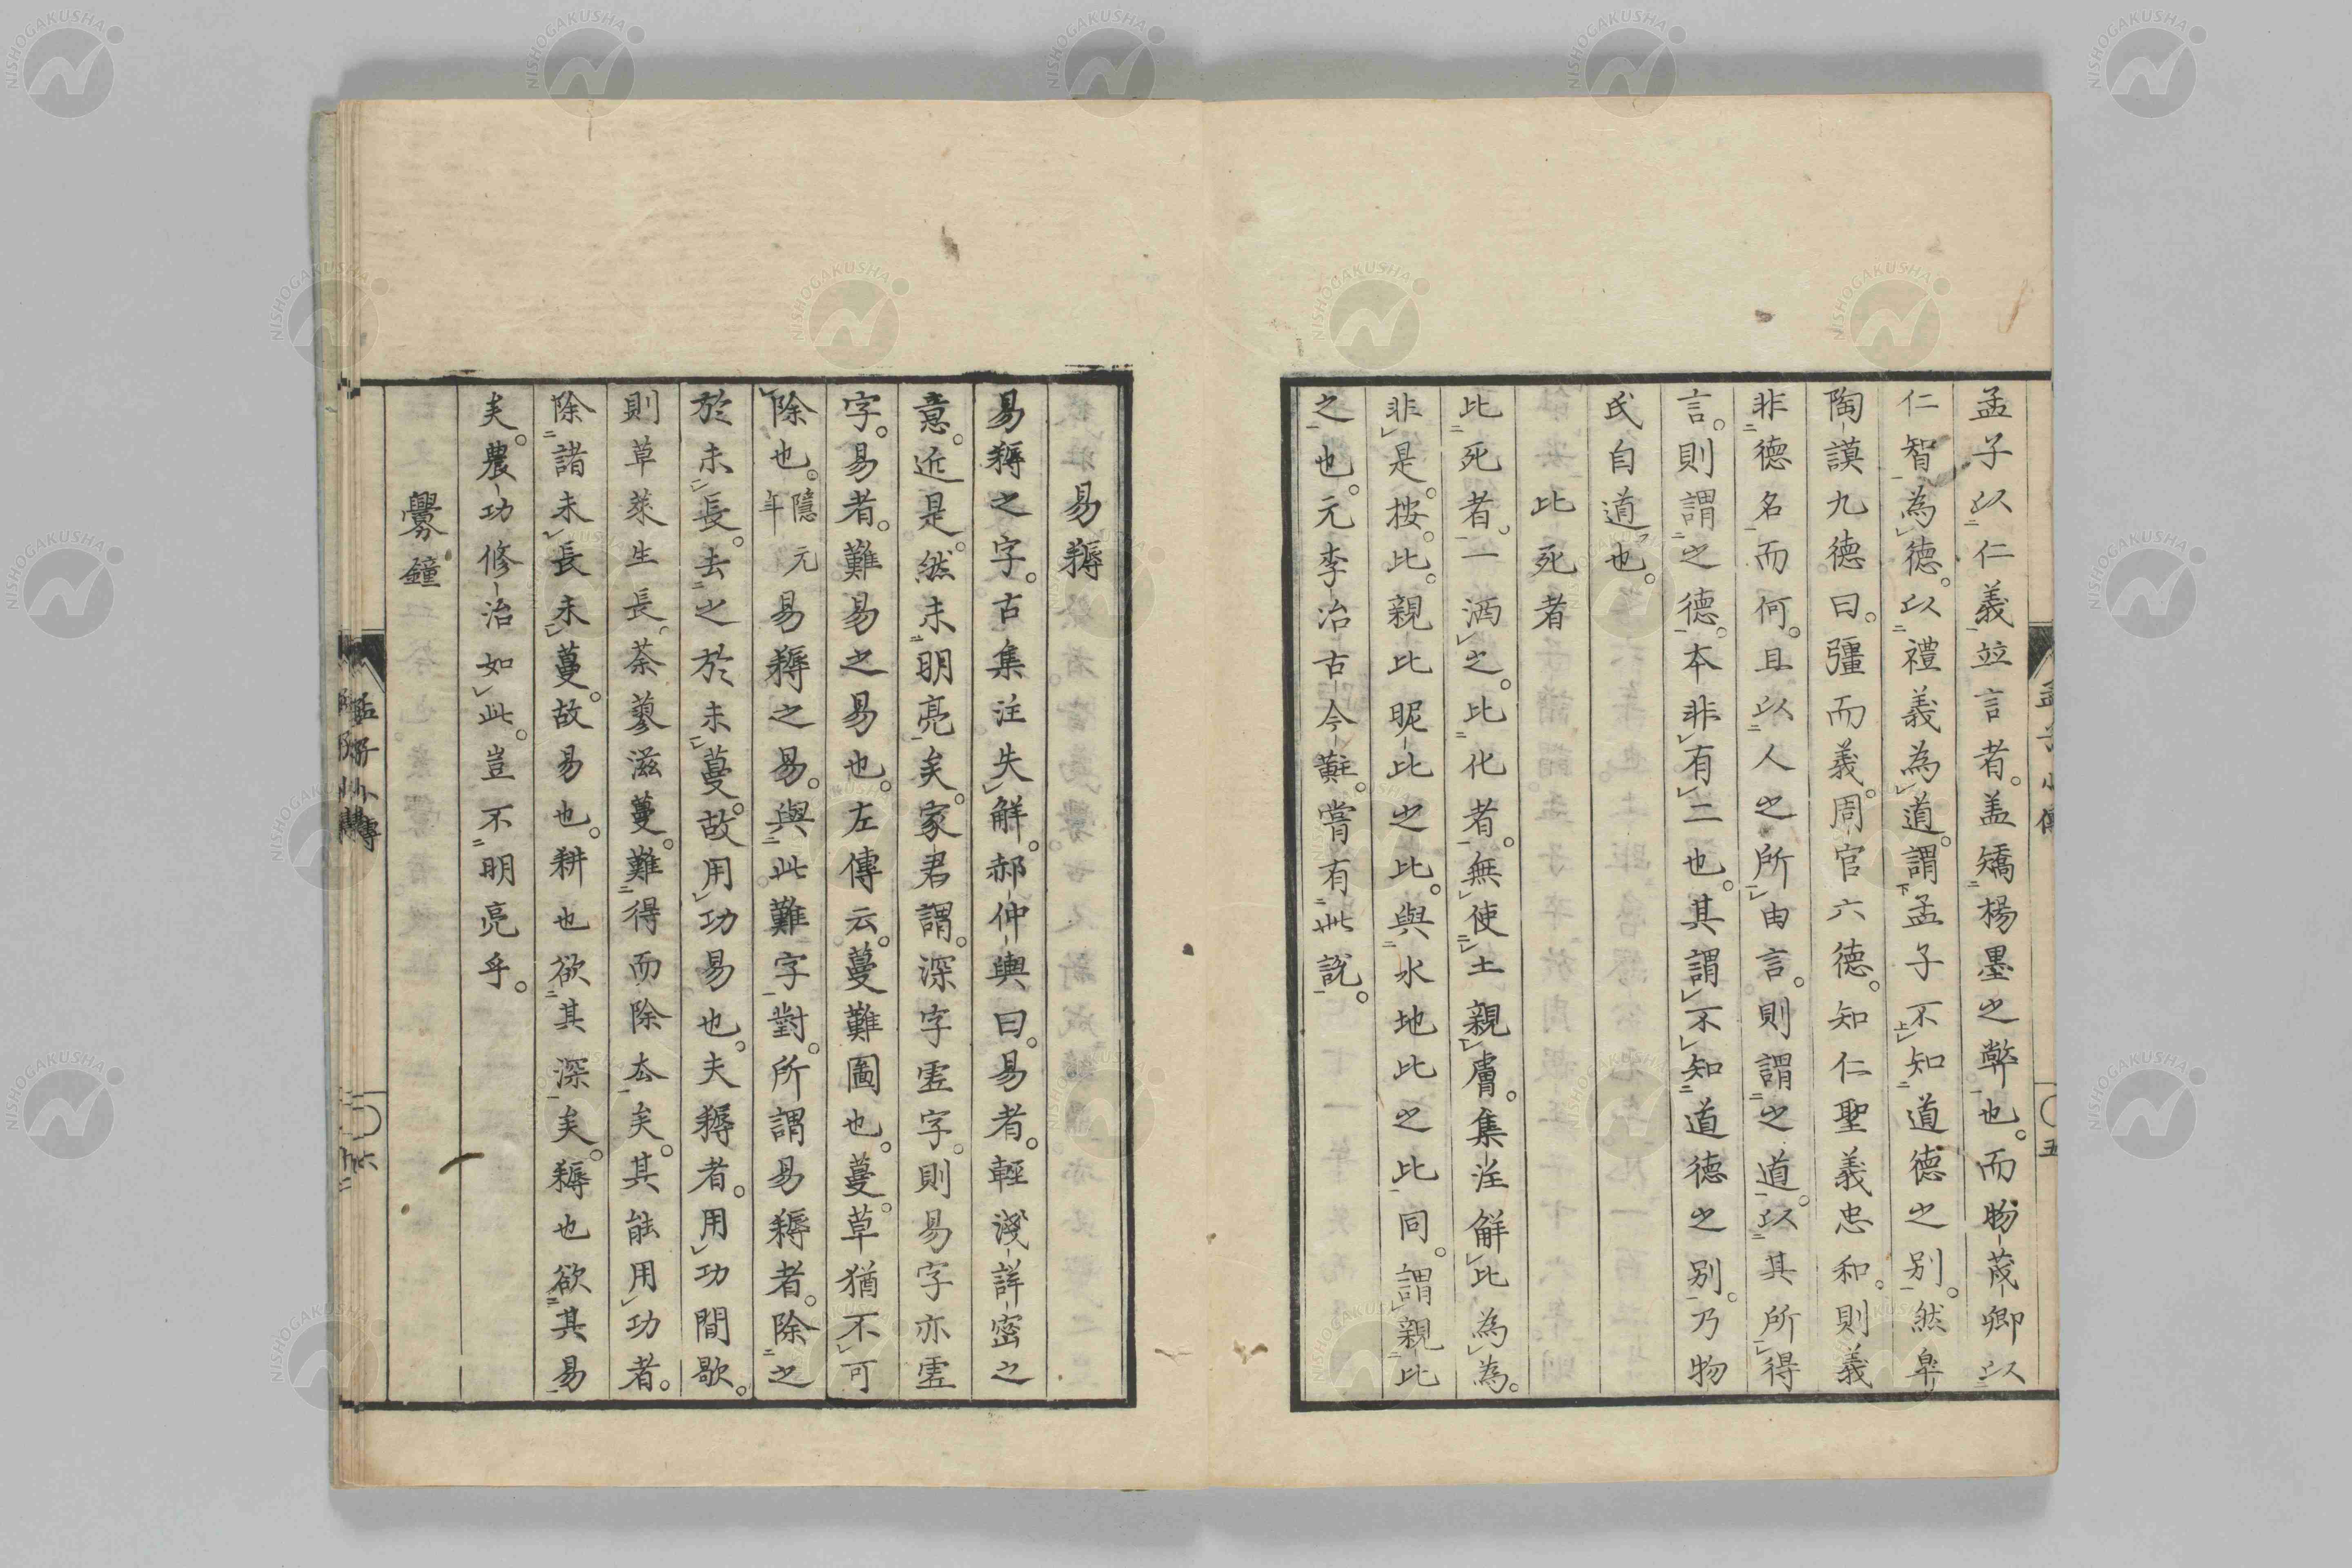 孟子以仁義竝言者。盖矯楊墨之弊也。而物茂卿以
仁智為德。以禮義為道。謂孟子不知道德之別。然皐
陶謨九德曰。彊而義。周官六德。知仁聖義忠和。則義
非德名而何。且以人之所由言。則謂之道。以其所得
言。則謂之德。本非有二也。其謂不知道德之別。乃物
氏自道也。
此死者
比死者。一洒之。比化者。無使土親膚。集注解比為為。
非是。按。比。親比昵比之比。與水地比之比同。謂親比
之也。元李冶古今黈。嘗有此說。
易耨
易耨之字。古集注失解。郝仲輿曰。易者。輕淺詳密之
意。近是。然未明亮矣。家君謂。深字虛字。則易字亦虛
字。易者。難易之易也。左傳云。蔓難圖也。蔓。草猶不可
除也。隱元年易耨之易。與此難字對。所謂易耨者。除之
於未長。去之於未蔓。故用功易也。夫耨者。用功間歇。
則草萊生長。荼蓼滋蔓。難得而除去矣。其能用功者。
除諸未長未蔓。故易也。耕也欲其深矣。耨也欲其易
矣。農功修治如此。豈不明亮乎。
釁鐘
孟子小傳
五
NISHOGAKUSHA